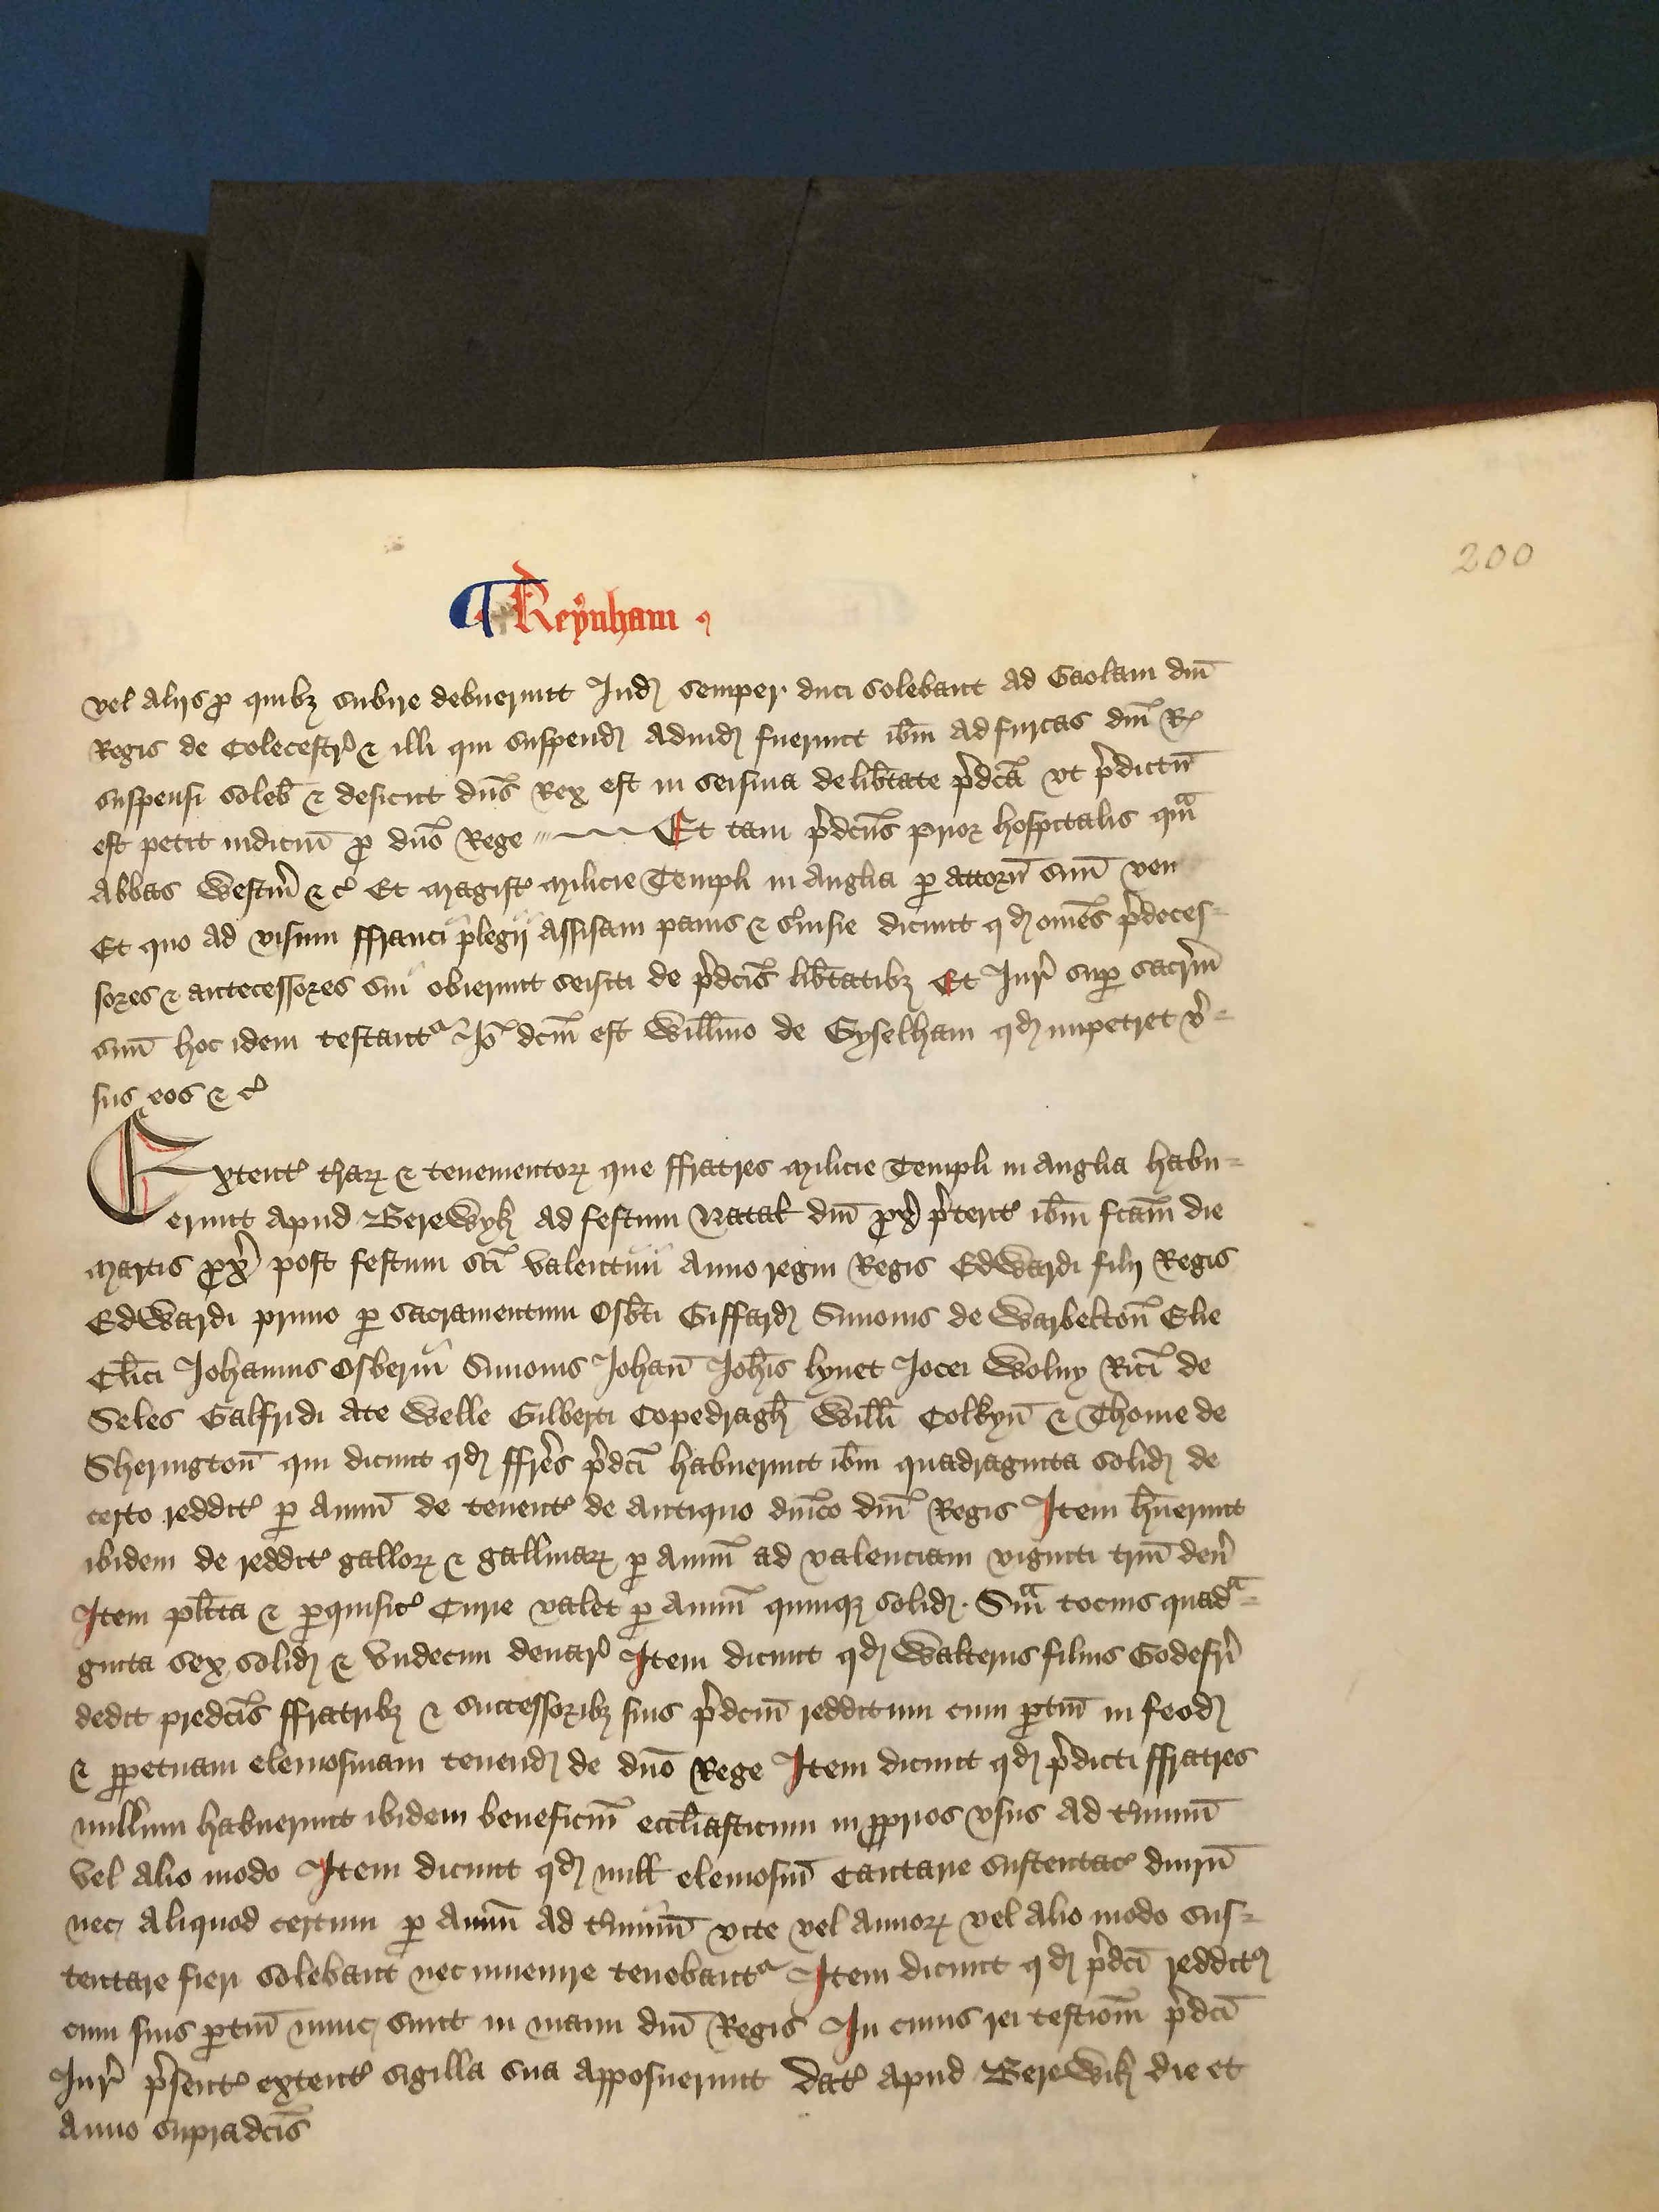 200
¶ Reynham
vel alijs ꝓ quibꝫ subire debuerunt Iudꝭ semper duci solebant ad Gaolam dn̄i
Regis de Colecestr̉ ⁊ illi qui suspendꝭ adiudꝭ fuerunt ib̄m ad furcas dn̄i R̉
suspensi soleb̄ ⁊ desicut dn̄s Rex est in seisina de lib̄tate p̉dc̄a vt p̉dictū
est petit iudiciū ꝓ dn̄o Rege Et tam p̉dcūs prior hospitalis qm̄ᵃ
Abbas Westm̄ ⁊ c̉ Et magist̉ milicie Templi in Anglia ꝑ attorn̄ suū ven
Et quo ad visum ffranci plegij assisam panis ⁊ s̉uisie dicunt qdꝭ omēs p̉deces-
sores ⁊ antecessores sui obierunt seisiti de p̉dcīs lib̄tatibꝫ Et Iur̉ suꝑ sacr̄m
suū hoc idem testantᵃ Iō dcm̄ est Willm̄o de Gyselham qdꝭ impetret v̉-
sus eos ⁊ c̉
Extent̉ t̉raꝝ ⁊ tenementoꝝ que ffratres milicie Templi in Anglia habu-
erunt apud Berewykꝭ ad festum Natal̄ dn̄i ꝓx̉ p̉terit̉ ib̄m fcām die
martis ꝓx̉ post festum sc̄i Valentini Anno regni Regis Edwardi filij Regis
Edwardi primo ꝑ sacramentum Osb̄ti Giffardꝭ Simonis de Warbelton̄ Elie
Cl̄ici Johannis Osberni Simonis Johan̄ Joh̄is lynet Jocei Woluy Ric̄i de
Seles Galfridi Ate Welle Gilberti Copedragh̄ Will̄i Colkyn̄ ⁊ Thome de
Sheringtoñ qui dicunt qdꝭ ffr̄es p̉dc̄i habuerunt ib̄m quadraginta solidꝭ de
certo reddit̉ ꝑ annū de tenent̉ de antiquo dn̄ico dn̄i Regis Item h̄uerunt
ibidem de reddit̉ galloꝝ ⁊ gallinaꝝ ꝑ annū ad valenciam viginti triū den̉
Item pl̄ita ⁊ ꝑquisit̉ Curie valet ꝑ annū quinqꝫ solidꝭ. Sm̄ᵃ tocius quadᵃ-
ginta sex solidꝭ ⁊ vndecim denar̉ Item dicunt qdꝭ Walterus filius Godefr̉i
dedit predcīs ffratribꝫ ⁊ successoribꝫ suis p̉dcm̄ redditum cum ꝑtin̄ in feodꝭ
⁊ ꝑpetuam elemosinam tenendꝭ de dn̄o Rege Item dicunt qdꝭ p̉dicti ffratres
nullum habuerunt ibidem beneficiū eccl̄iasticum in ꝓprios vsus ad t̉minū
vel alio modo Item dicunt qdꝭ null̄ elemosin̄ cantarie sustentac̉ diuin̄
nec aliquod certum ꝑ annū ad t̉minū vite vel annoꝝ vel alio modo sus-
tentare fieri solebant nec inuenire tenebantᵃ Item dicunt qdꝭ p̉dcī redditꝰ
cum suis ꝑtin̄ nunc sunt in manu dn̄i Regis In cuius rei testiōm p̉dcī
Iur̉ p̉sent̉ extent̉ sigilla sua apposuerunt Dat̉ apud Berewikꝭ die et
Anno supradcīs